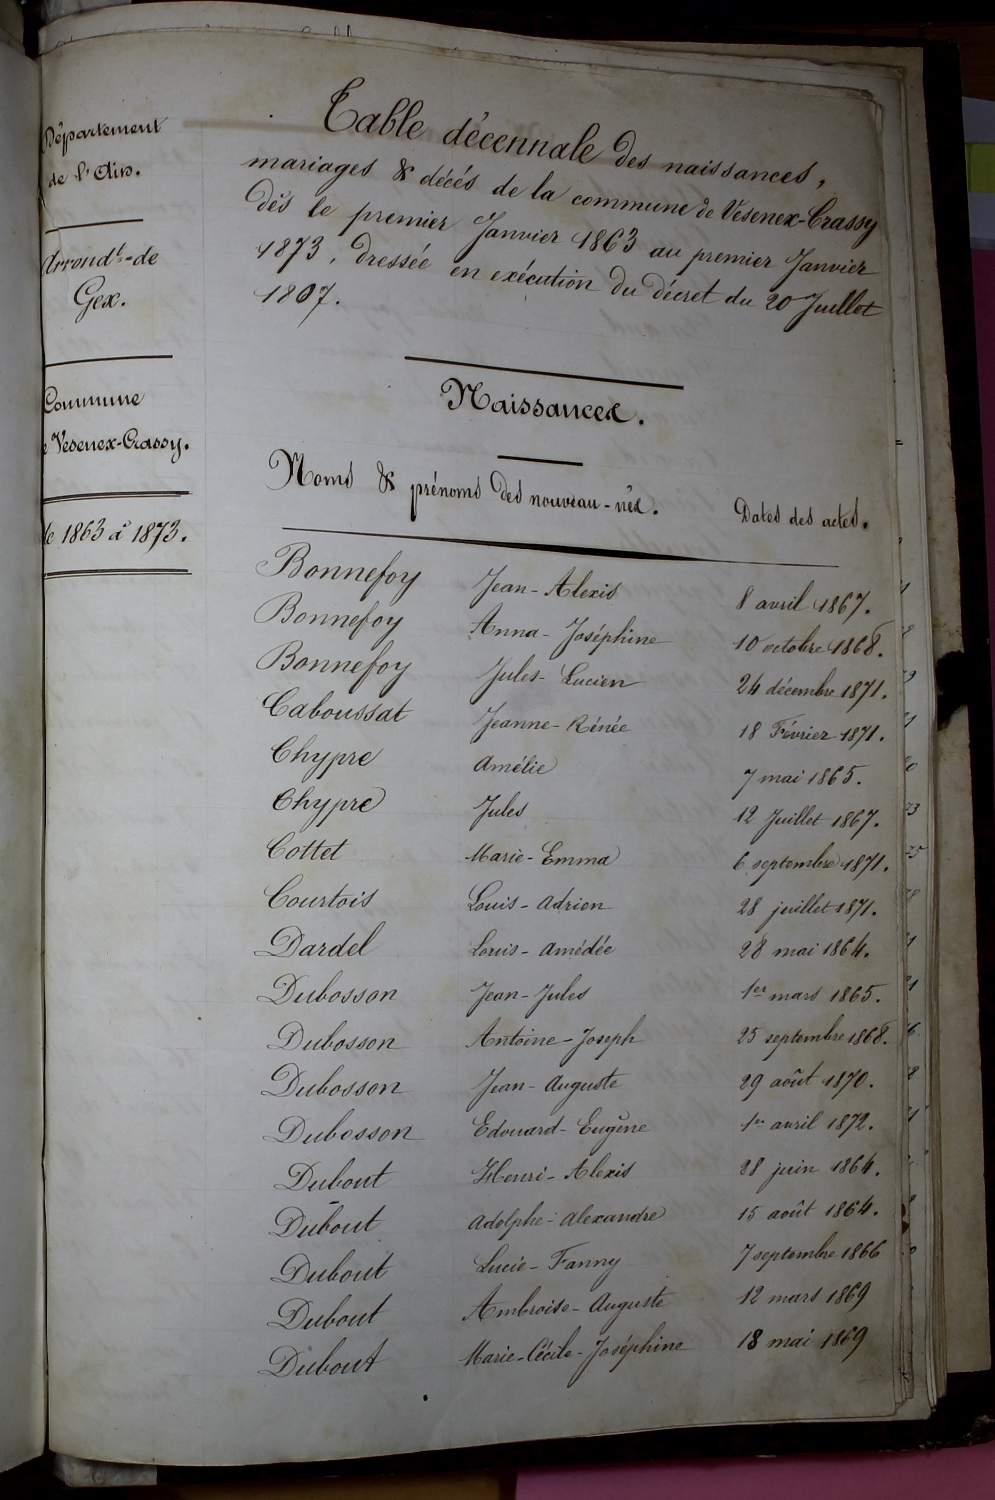 Département
de l'Ain.
Arrondt.-de
Gex.
Commune
Vesenex-Crassy.
de 1863 à 1873.
Table décennale des naissances,
mariages & décés de la commune de Vesenex-Crassy
dès le premier Janvier 1863 au premier Janvier
1873, dressée en exécution du décret du 20 Juillet
1807.
Naissances.
Noms & prénoms des nouveau-nés. Dates des actes.
Bonnefoy Jean-Alexis 8 avril 1867.
Bonnefoy Anna-Joséphine 10 octobre 1868.
Bonnefoy Jules-Lucien 24 décembre 1871.
Caboussat Jeanne-Rénée 18 Février 1871.
Chypre Amélie 7 mai 1865.
Chypre Jules 12 Juillet 1867.
Cottet Marie-Emma 6 septembre 1871.
Courtois Louis-Adrien 28 juillet 1871.
Dardel Louis-Amédée 28 mai 1864.
Dubosson Jean-Jules 1er mars 1865.
Dubosson Antoine-Joseph 25 septembre 1868.
Dubosson Jean-Auguste 29 août 1870.
Dubosson Edouard-Eugène 1er avril 1872.
Dubout Henri-Alexis 28 juin 1864.
Dubout Adolphe-Alexandre 15 août 1864.
Dubout Lucie-Fanny 7 septembre 1866
Dubout Ambroise-Auguste 12 mars 1869
Dubout Marie-Cécile-Joséphine 18 mai 1869